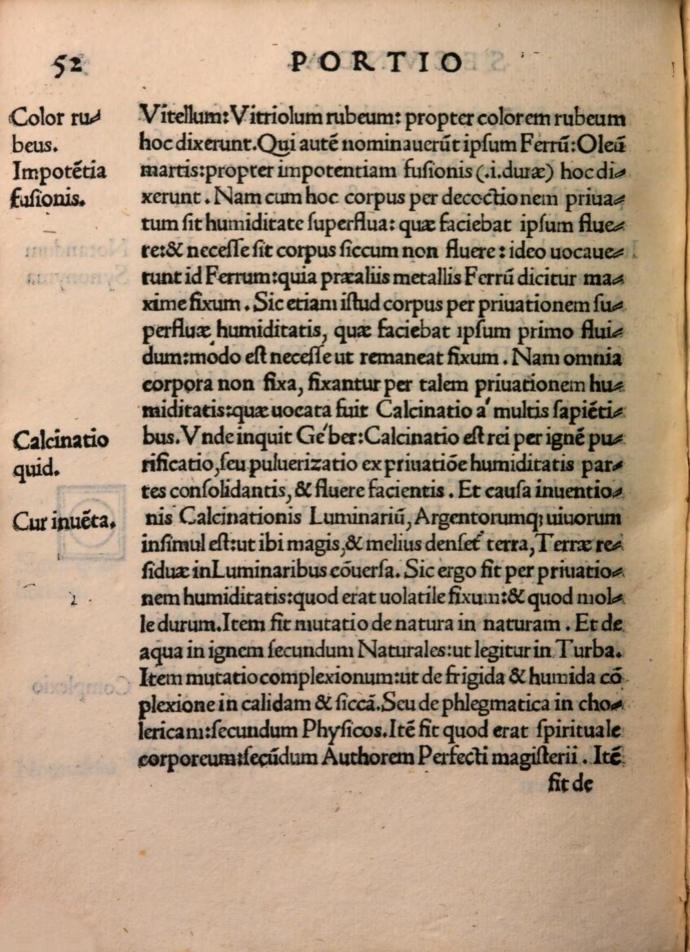 52
PORTIO
Color ru⸗
beus.
Impotẽtia
fusionis.
Vitellum: Vitriolum rubeum: propter colorem rubeum
hoc dixerunt. Qui autẽ nominauerũt ipsum Ferrũ: Oleũ
martis: propter impotentiam fusionis (.i. duræ) hoc di⸗
xerunt. Nam cum hoc corpus per decoctionem priua⸗
tum sit humiditate superflua: quæ faciebat ipsum flue⸗
re: & necesse sit corpus siccum non fluere: ideo uocaue⸗
runt id Ferrum: quia præ aliis metallis Ferrũ dicitur ma⸗
xime fixum. Sic etiam istud corpus per priuationem su⸗
perfluæ humiditatis, quæ faciebat ipsum primo flui⸗
dum: modo est necesse ut remaneat fixum. Nam omnia
corpora non fixa, fixantur per talem priuationem hu⸗
miditatis: quæ uocata fuit Calcinatio a' multis sapiẽti⸗
Calcinatio
quid.
bus. Vnde inquit Ge'ber: Calcinatio est rei per ignẽ pu⸗
rificatio, seu puluerizatio ex priuatiõe humiditatis par⸗
tes consolidantis, & fluere facientis. Et causa inuentio⸗
Cur inuẽta.
nis Calcinationis Luminariũ, Argentorumq; uiuorum
insimul est: ut ibi magis, & melius denset' terra, Terræ re⸗
siduæ in Luminaribus cõuersa. Sic ergo fit per priuatio⸗
nem humiditatis: quod erat uolatile fixum: & quod mol⸗
le durum. Item fit mutatio de natura in naturam. Et de
aqua in ignem secundum Naturales: ut legitur in Turba.
Item mutatio complexionum: ut de frigida & humida cõ
plexione in calidam & siccã. Seu de phlegmatica in cho⸗
lericam: secundum Physicos. Itẽ fit quod erat spirituale
corporeum: secũdum Authorem Perfecti magisterii. Itẽ
fit de